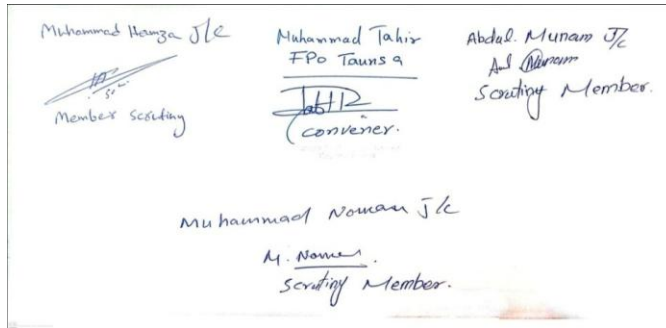 Muhammad Hamza J/c
Member Scrutiny
Muhammad Tahir
FPO Taunsa
Convener.
Abdul. Munam J/c
Munam
Scrutiny Member.
Muhammad Noman J/c
M. Noman.
Scrutiny Member.